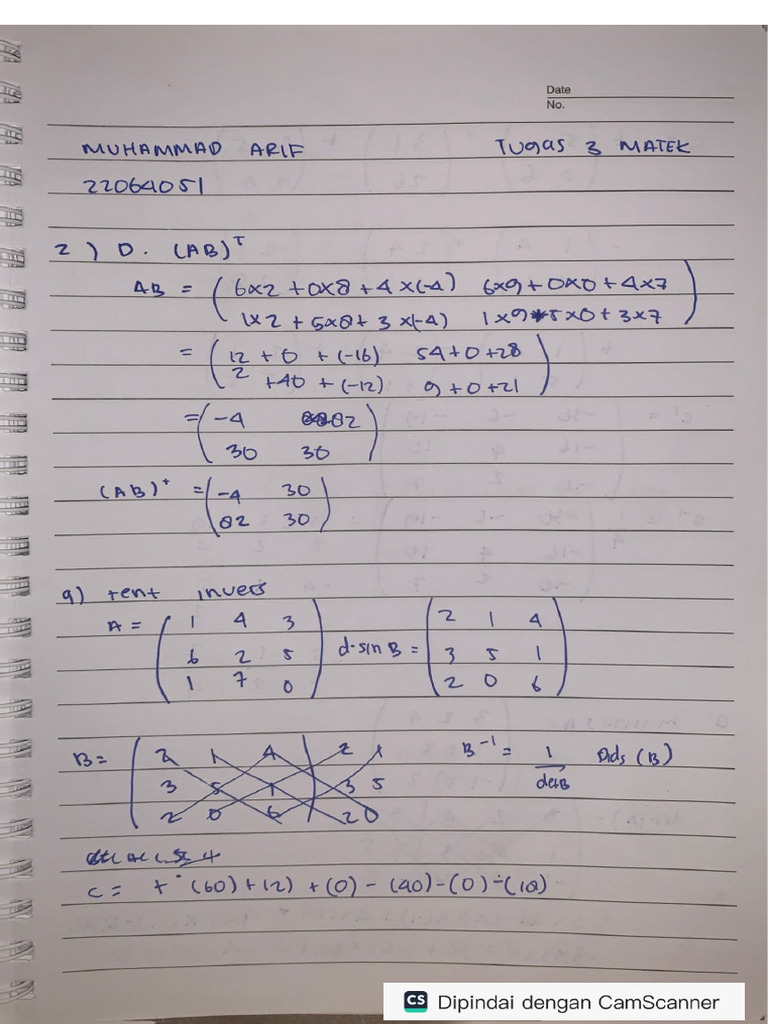 Date
No.
MUHAMMAD ARIF TUGAS 3 MATEK
22064051
2) D. (AB)ᵀ
AB = ( 6x2 + 0x8 + 4 x(-4) 6x9 + 0x0 + 4x7
1x2 + 5x8 + 3 x(-4) 1x9 + 5x0 + 3x7 )
= ( 12 + 0 + (-16) 54 + 0 + 28
2 + 40 + (-12) 9 + 0 + 21 )
= ( -4 82
30 30 )
(AB)ᵗ = ( -4 30
82 30 )
9) tent invers
A = ( 1 4 3
6 2 5
1 7 0 ) d.sin B = ( 2 1 4
3 5 1
2 0 6 )
B = ( 2 1 4 ) 2 1 B⁻¹ = 1/det B Ads (B)
3 5 1 3 5
2 0 6 2 0
C = + (60) + (2) + (0) - (40) - (0) - (18)
CS Dipindai dengan CamScanner